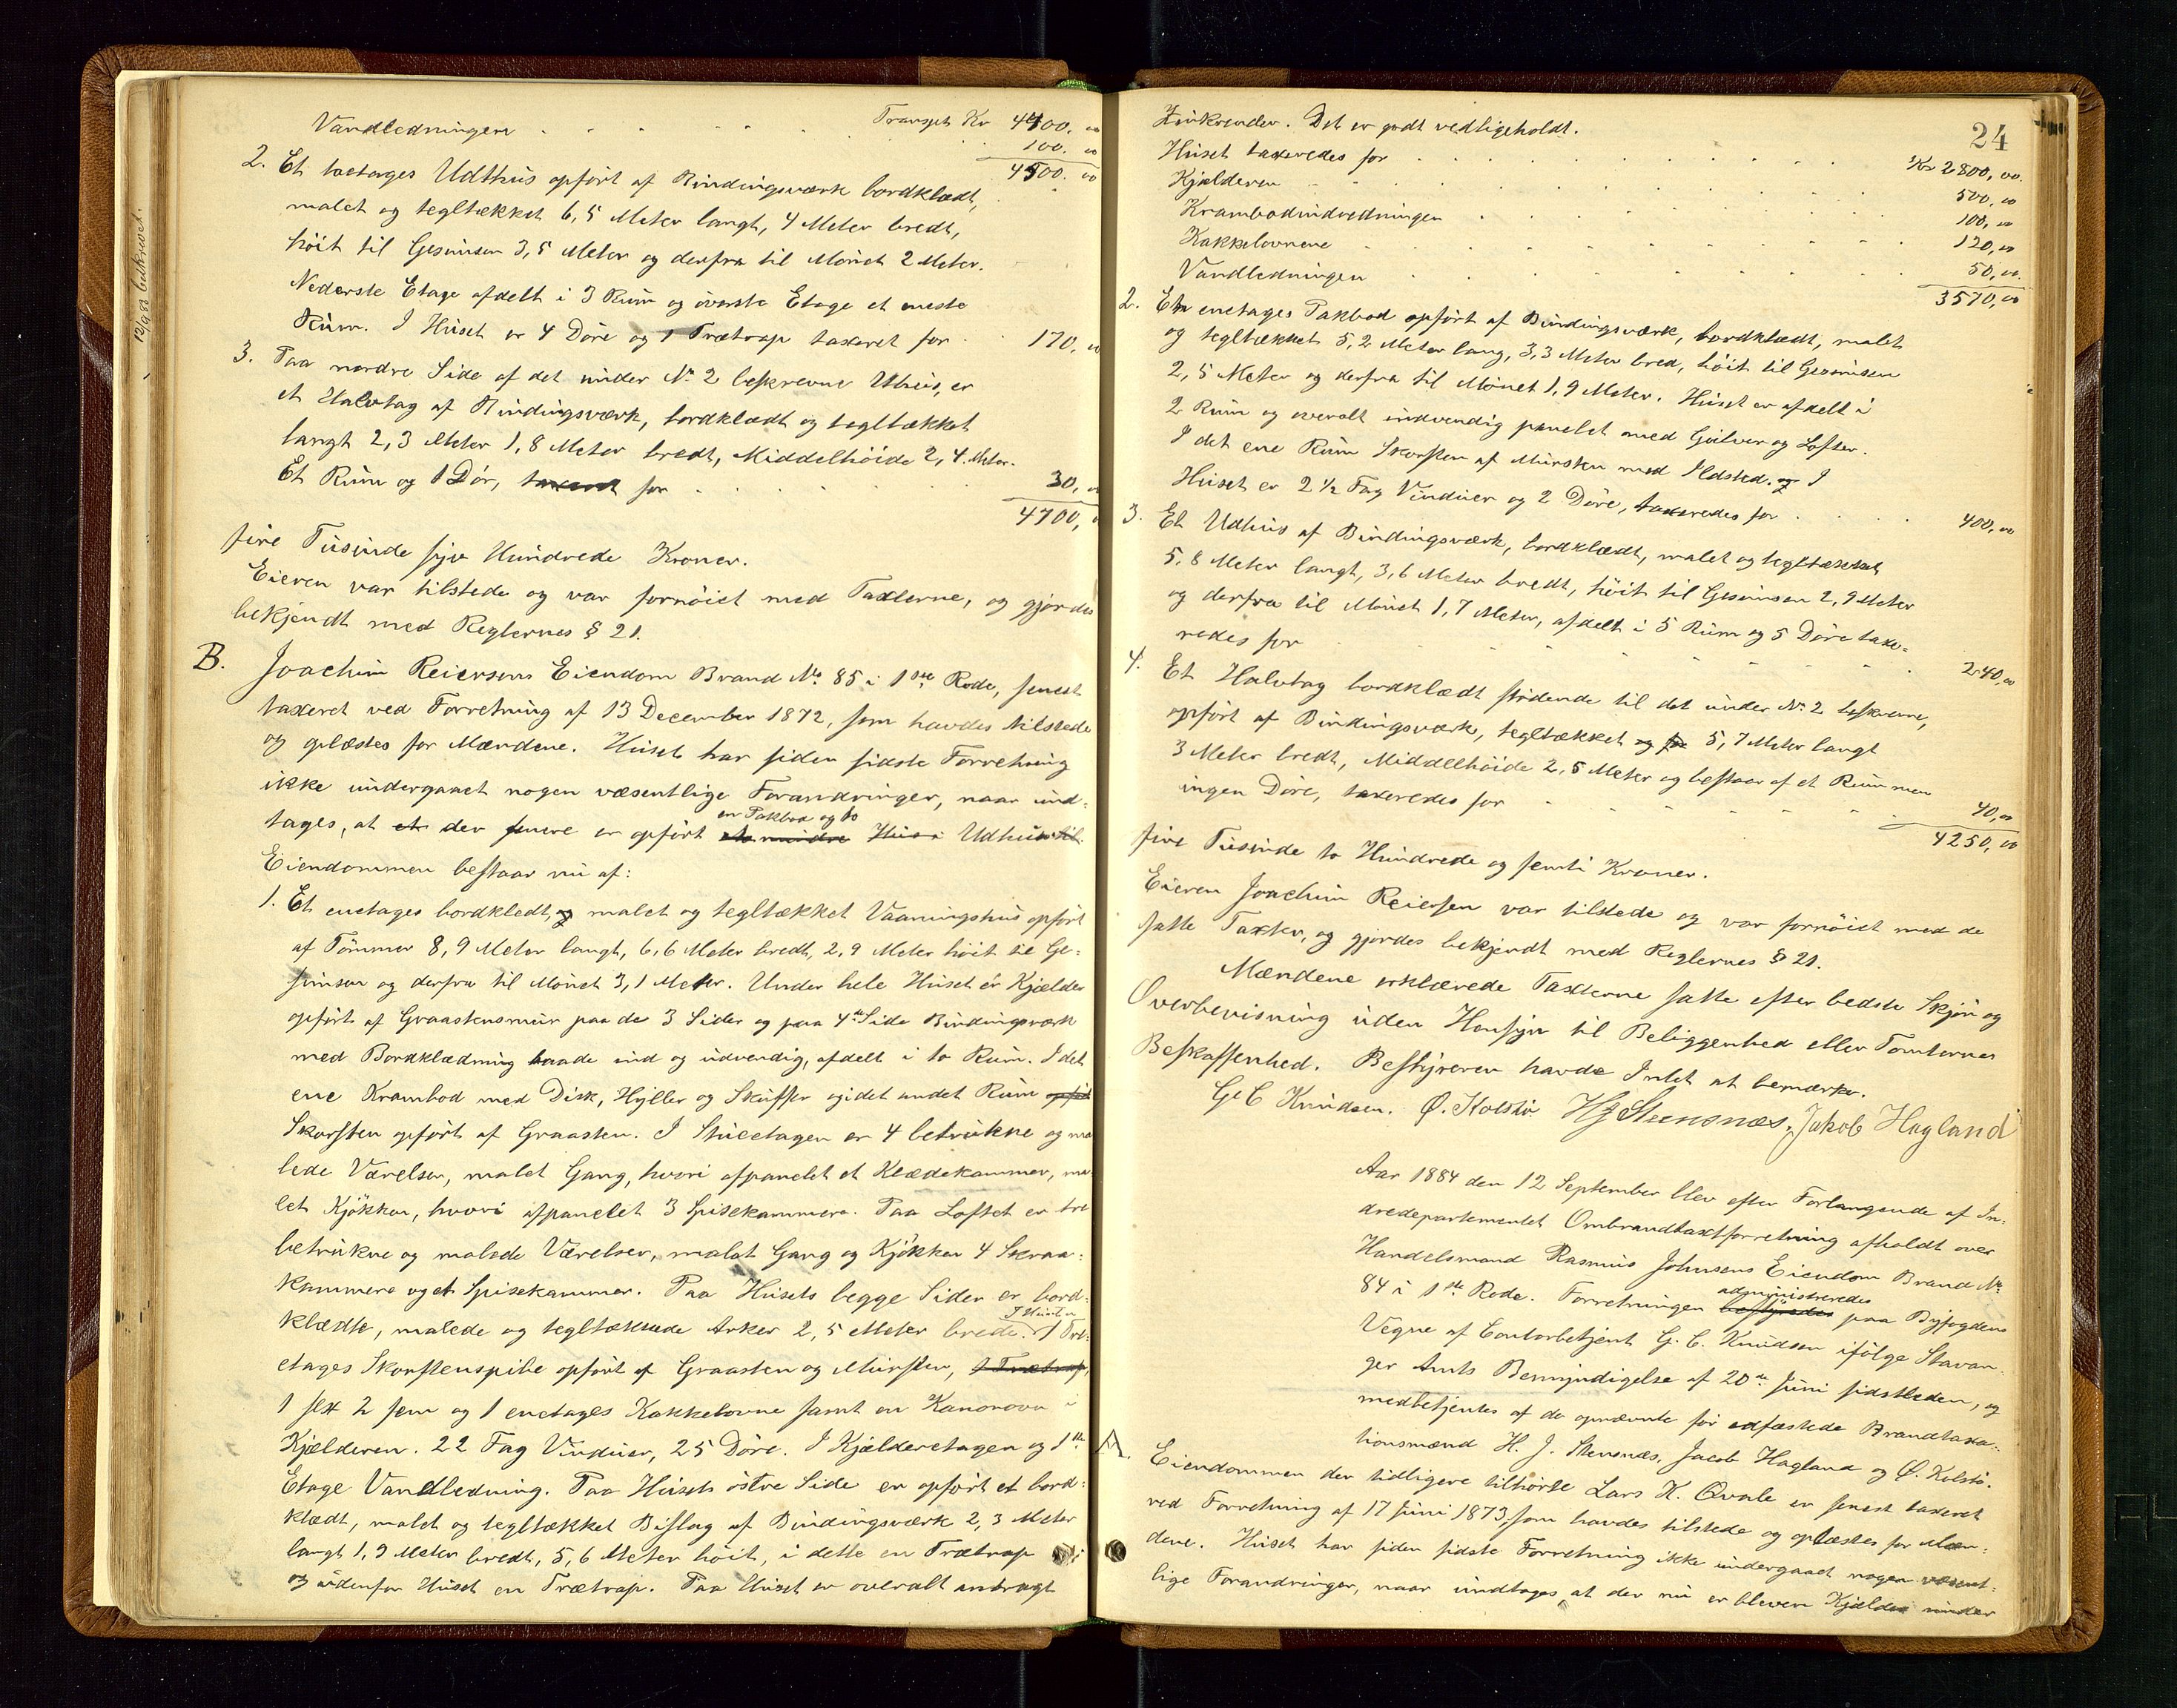 Transpt Kr 4400, 00
Vandledningen . . . . . . 100. 00
4500. 00
2. Et toetages Udthus opført af Bindingsværk bordklædt,
malet og tegltækket 6,5 Meter langt, 4 Meter bredt,
høit til Gesimsen 3,5 Meter og derfra til Mønet 2 Meter.
Nederste Etage afdelt i 3 Rum og øverste Etage et eneste
Rum. I Huset er 4 Döre og 1 Trætrap taxeret for . . 170, 00
3. Paa nordre Side af det under No 2 beskrevne Uthus, er
et Halvtag af Bindingsværk, bordklædt og tegltækket
langt 2,3 Meter 1,8 Meter bredt, Middelhöide 2,4. Meter.
Et Rum og 1 Dör, taxeret for . . . . . 30, 00
4700, 00
fire Tusinde syv Hundrede Kroner.
Eieren var tilstede og var fornöiet med Taxterne, og gjordes
bekjendt med Reglernes § 21.
B. Joachim Reiersens Eiendom Brand No 85 i 1ste Rode, senest
taxeret ved Forretning af 13 December 1872, som havdes tilstede
og oplæstes for Mændene. Huset har siden sidste Forretning
ikke undergaaet nogen væsentlige Forandringer, naar und-
en Pakbod og to
tages, at et der senere er opført et mindre Hus i Udhus til.
Eiendommen bestaar nu af:
1. Et enetages bordkledt, og malet og tegltækket Vaaningshus opført
af Tömmer 8,9 Meter langt, 6,6 Meter bredt, 2,9 Meter höit til Ge-
simsen og derfra til Mönet 3,1 Meter. Under hele Huset er Kjælder
opført af Graastensmur paa de 3 Sider og paa 4de Side Bindingsværk
med Bordklædning baade ind og udvendig, afdelt i to Rum. I det
ene Krambod med Disk, Hyller og Skuffer og i det andet Rum opført
Skorsten opført af Graasten. I Stueetagen er 4 betrukne og ma
lede Værelser, malet Gang, hvori afpanelet et Klædekammer, ma-
let Kjökken, hvori afpanelet 3 Spisekammere. Paa Loftet er tre
betrukne og malede Værelser, malet Gang og Kjökken 4 Skraa-
kammere og et Spisekammer. Paa Husets begge Sider er bord-
I Huset er
klædte, malede og tegltækkede Arker 2,5 Meter brede. 1 Tre-
etages Skorstenspibe opført af Graasten og Mursten, 1 Trætrap,
1 sex 2 fem og 1 enetages Kakkelovne samt en Kanonovn i
Kjælderen. 22 Fag Vinduer, 25 Döre. I Kjælderetagen og 1ste
Etage Vandledning. Paa Husets östre Side er opført et bord-
klædt, malet og tegltækket Bislag af Bindingsværk 2,3 Meter
langt 1,9 Meter bredt, 5,6 Meter höit, i dette en Trætrap
og udenfor Huset en Trætrap. Paa Huset er overalt anbragt
24
Zinkrender. Det er godt vedligeholdt.
Huset taxeredes for . . . . . Kr 2800, 00.
Kjælderen . . . . . 500, 00
Krambodindredningen . . . . . 100, 00
Kakkelovnene . . . . . 120, 00
Vandledningen . . . . . 50, 00.
3570, 00
2. En enetages Pakbod opført af Bindingsværk, bordklædt, malet
og tegltækket 5,2 Meter lang, 3,3 Meter bred, höit til Gesimsen
2,5 Meter og derfra til Mönet 1,9 Meter. Huset er afdelt i
2 Rum og overalt indvendig panelet med Gulver og Lofter.
I det ene Rum Skorsten af Mursten med Ildsted. og I
Huset er 2 ½ Fag Vinduer og 2 Döre, taxeredes for . . . 400, 00
3. Et Udhus af Bindingsværk, bordklædt, malet og tegltækket
5,8 Meter langt, 3,6 Meter bredt, höit til Gesimsen 2,9 Meter
og derfra til Mönet 1,7 Meter, afdelt i 5 Rum og 5 Döre taxe-
redes for . . . . . 240, 00
4. Et Halvtag bordklædt stödende til det under No 2 beskrevne,
opført af Bindingsværk, tegltækket og 5,7 Meter langt
3 Meter bredt, Middelhöide 2,5 Meter og bestaar af et Rum men
ingen Döre, taxeredes for . . . . . 40, 00
4250, 00
fire Tusinde to Hundrede og femti Kroner.
Eieren Joachim Reiersen var tilstede og var fornöiet med de
satte Taxter, og gjordes bekjendt med Reglernes § 21.
Mændene erklærede Taxterne satte efter bedste Skjön og
Overbevisning uden Hensyn til Beliggenhed eller Tomternes
Beskaffenhed. Bestyreren havde Intet at bemærke.
G. C Knudsen. Ø. Kolstø HJ Steensnæs. Jakob Hagland
Aar 1884 den 12 September blev efter Forlangende af In-
dredepartementet Ombrandtaxtforretning afholdt over
Handelsmand Rasmus Johnsens Eiendom Brand No
84 i 1ste Rode. Forretningen bestyredes administreredes paa Byfogdens
Vegne af Contorbetjent G. C. Knudsen ifölge Stavan-
ger Amts Bemyndigelse af 20de Juni sidstleden, og
medbetjentes af de opnævnte for edfæstede Brandtaxa-
tionsmænd H. J. Steensnæs, Jacob Hagland og Ø. Kolstö.
A. Eiendommen der tidligere tilhörte Lars K. Qvale er senest taxeret
ved Forretning af 17 Juni 1873, som havdes tilstede og oplæstes for Mæn-
dene. Huset har siden sidste Forretning ikke undergaaet nogen væsent-
lige Forandringer, naar undtages, at der nu er bleven Kjælder under